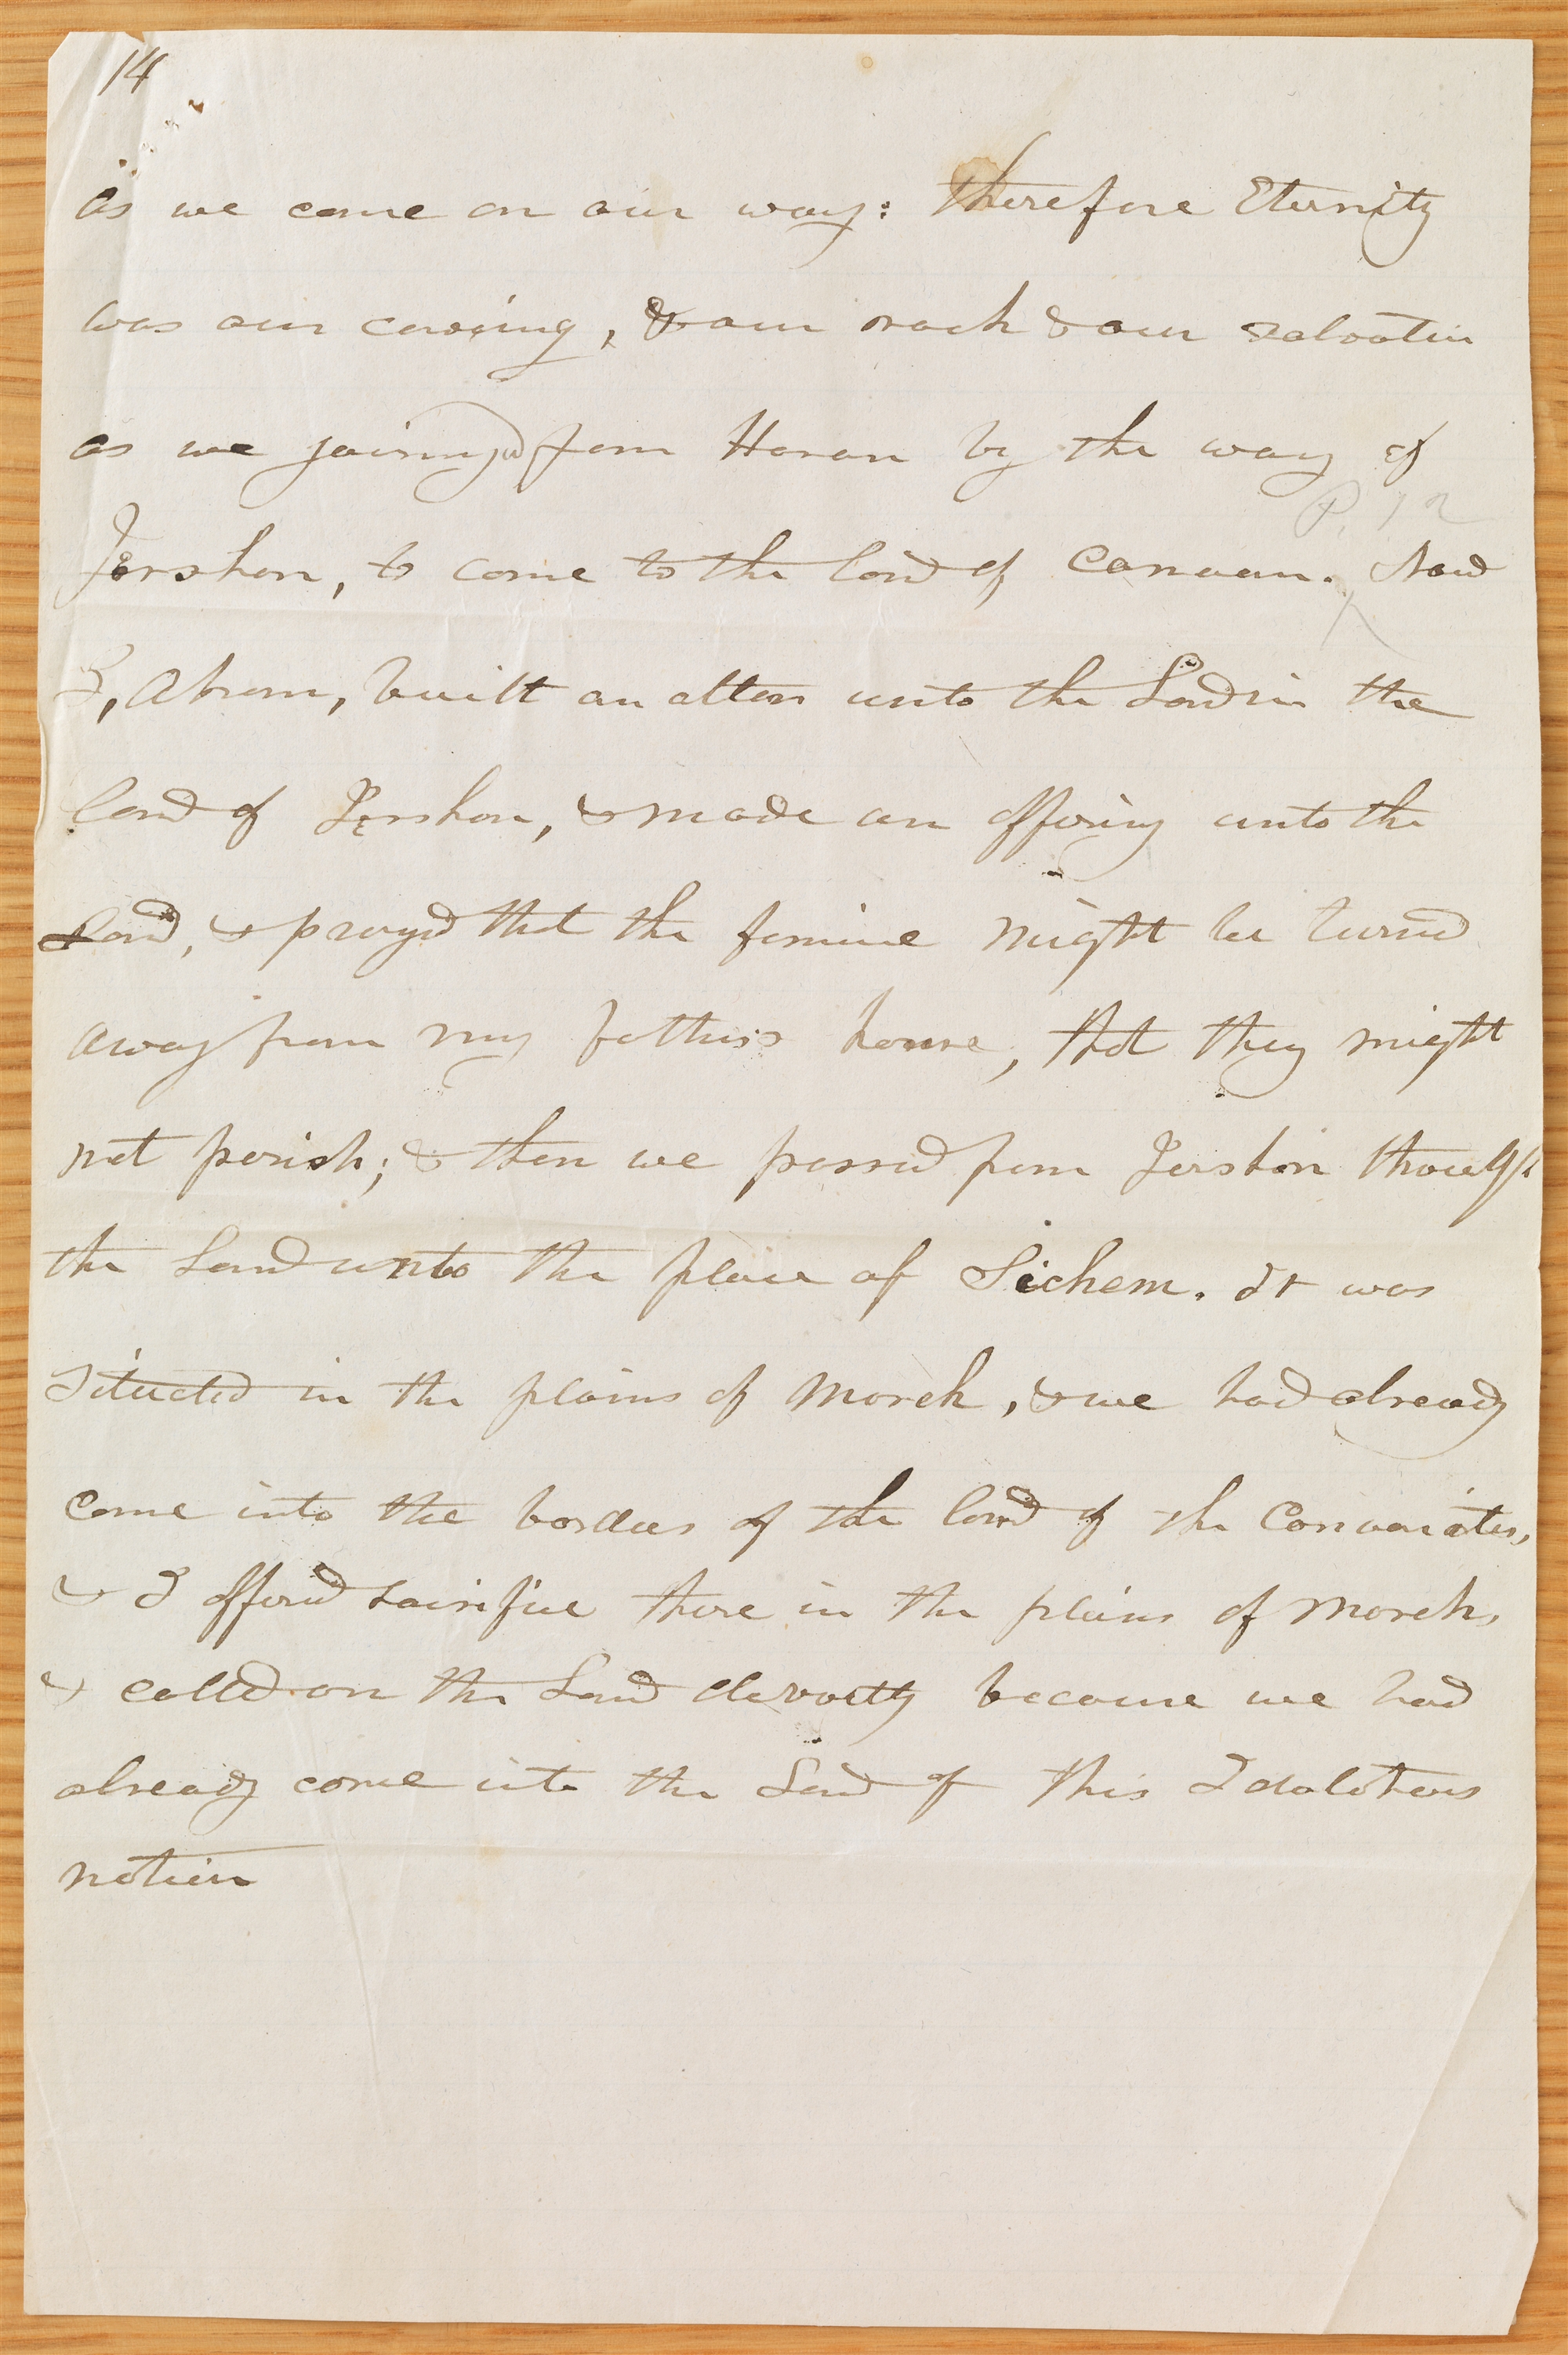 14
as we came on our way: therefore Eternity
was our covering, & our rock & our salvation
as we journeyed from Haran by the way of
P. 12
Jershon, to come to the land of Canaan. Now
I, Abram, built an altar unto the Lord in the
land of Jershon, & made an offering unto the
Lord, & prayed that the famine might be turned
away from my father's house, that they might
not perish; & then we passed from Jershon through
the Land unto the place of Sichem. It was
situated in the plains of Moreh, & we had already
come into the borders of the land of the Canaanites,
& I offered sacrifice there in the plains of Moreh,
& called on the Lord devoutly because we had
already come into the Land of this Idolatrous
nation